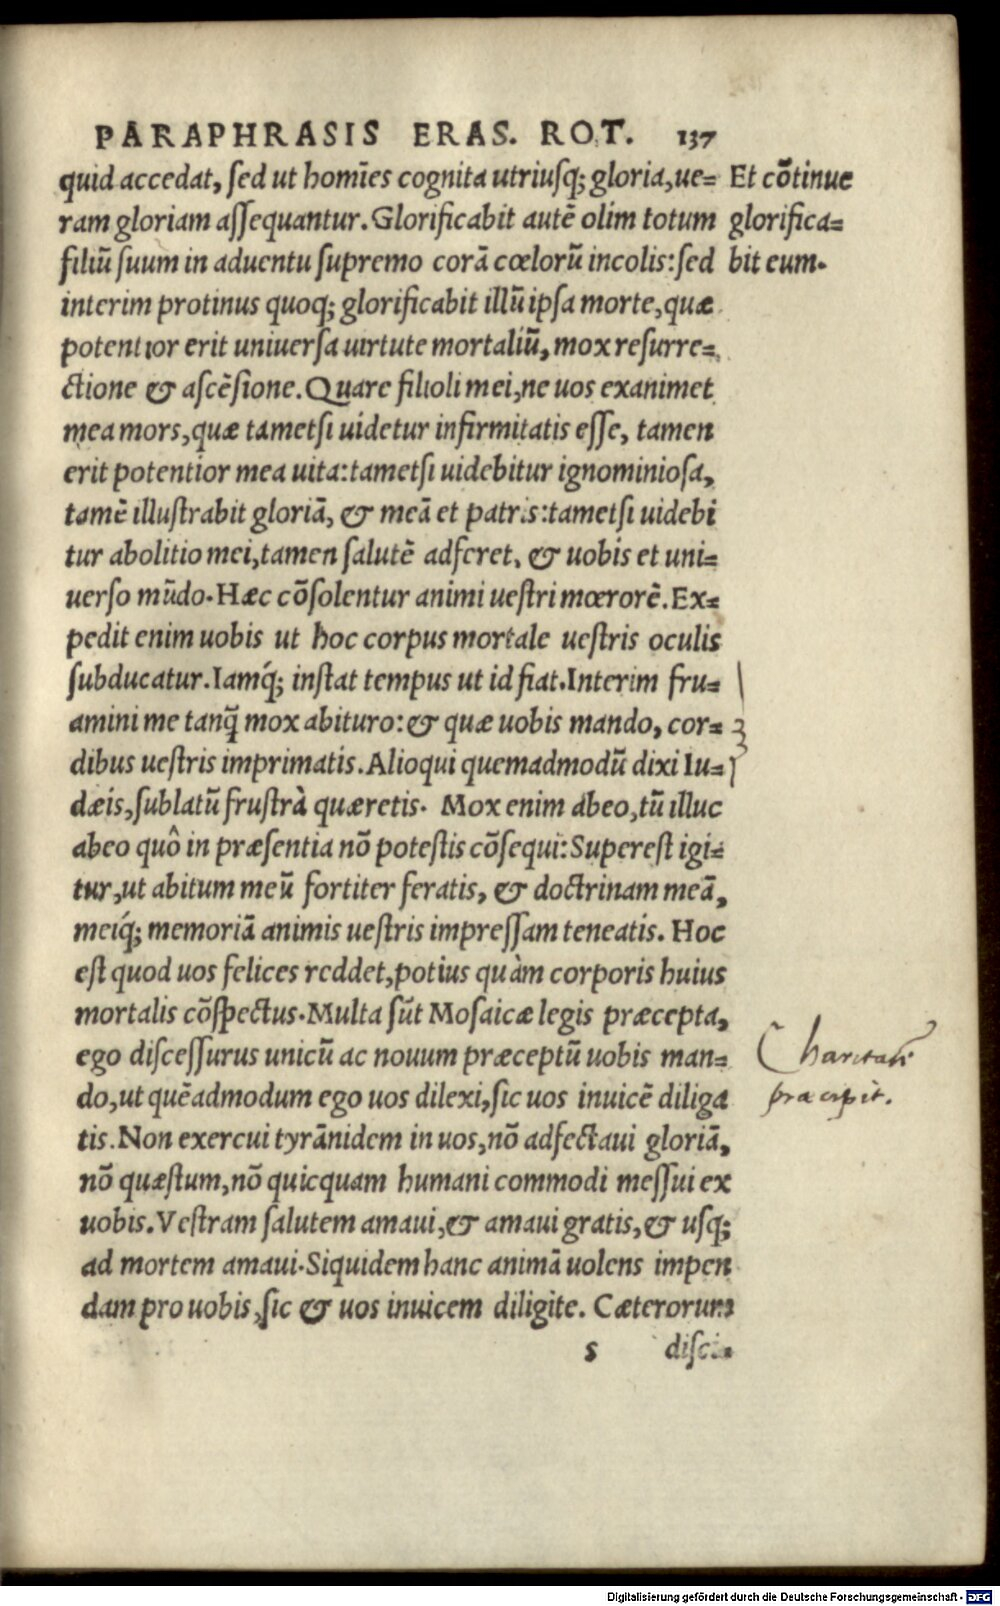 PARAPHRASIS ERAS. ROT. 137
quid accedat, sed ut homĩes cognita utriusq; gloria, ue=
ram gloriam assequantur. Glorificabit autẽ olim totum
filiũ suum in aduentu supremo corã cœlorũ incolis: sed
interim protinus quoq; glorificabit illũ ipsa morte, quæ
potentior erit uniuersa uirtute mortaliũ, mox resurre=
ctione & ascẽsione. Quare filioli mei, ne uos exanimet
mea mors, quæ tametsi uidetur infirmitatis esse, tamen
erit potentior mea uita: tametsi uidebitur ignominiosa,
tamẽ illustrabit gloriã, & meã et patris: tametsi uidebi
tur abolitio mei, tamen salutẽ adferet, & uobis et uni=
uerso mũdo. Hæc cõsolentur animi uestri mœrorẽ. Ex=
pedit enim uobis ut hoc corpus mortale uestris oculis
subducatur. Iamq́; instat tempus ut id fiat. Interim fru=
amini me tanq̃ mox abituro: & quæ uobis mando, cor=
dibus uestris imprimatis. Alioqui quemadmodũ dixi Iu=
dæis, sublatũ frustrà quæretis. Mox enim abeo, tũ illuc
abeo quô in præsentia nõ potestis cõsequi: Superest igi=
tur, ut abitum meũ fortiter feratis, & doctrinam meã,
meiq́; memoriã animis uestris impressam teneatis. Hoc
est quod uos felices reddet, potius quàm corporis huius
mortalis cõspectus. Multa sũt Mosaicæ legis præcepta,
ego discessurus unicũ ac nouum præceptũ uobis man=
do, ut quẽadmodum ego uos dilexi, sic uos inuicẽ diliga
tis. Non exercui tyrãnidem in uos, nõ adfectaui gloriã,
nõ quæstum, nõ quicquam humani commodi messui ex
uobis. Vestram salutem amaui, & amaui gratis, & usq;
ad mortem amaui. Siquidem hanc animã uolens impen
dam pro uobis, sic & uos inuicem diligite. Cæterorum
s disci=
Et cõtinue
glorifica=
bit eum.
præcipit.